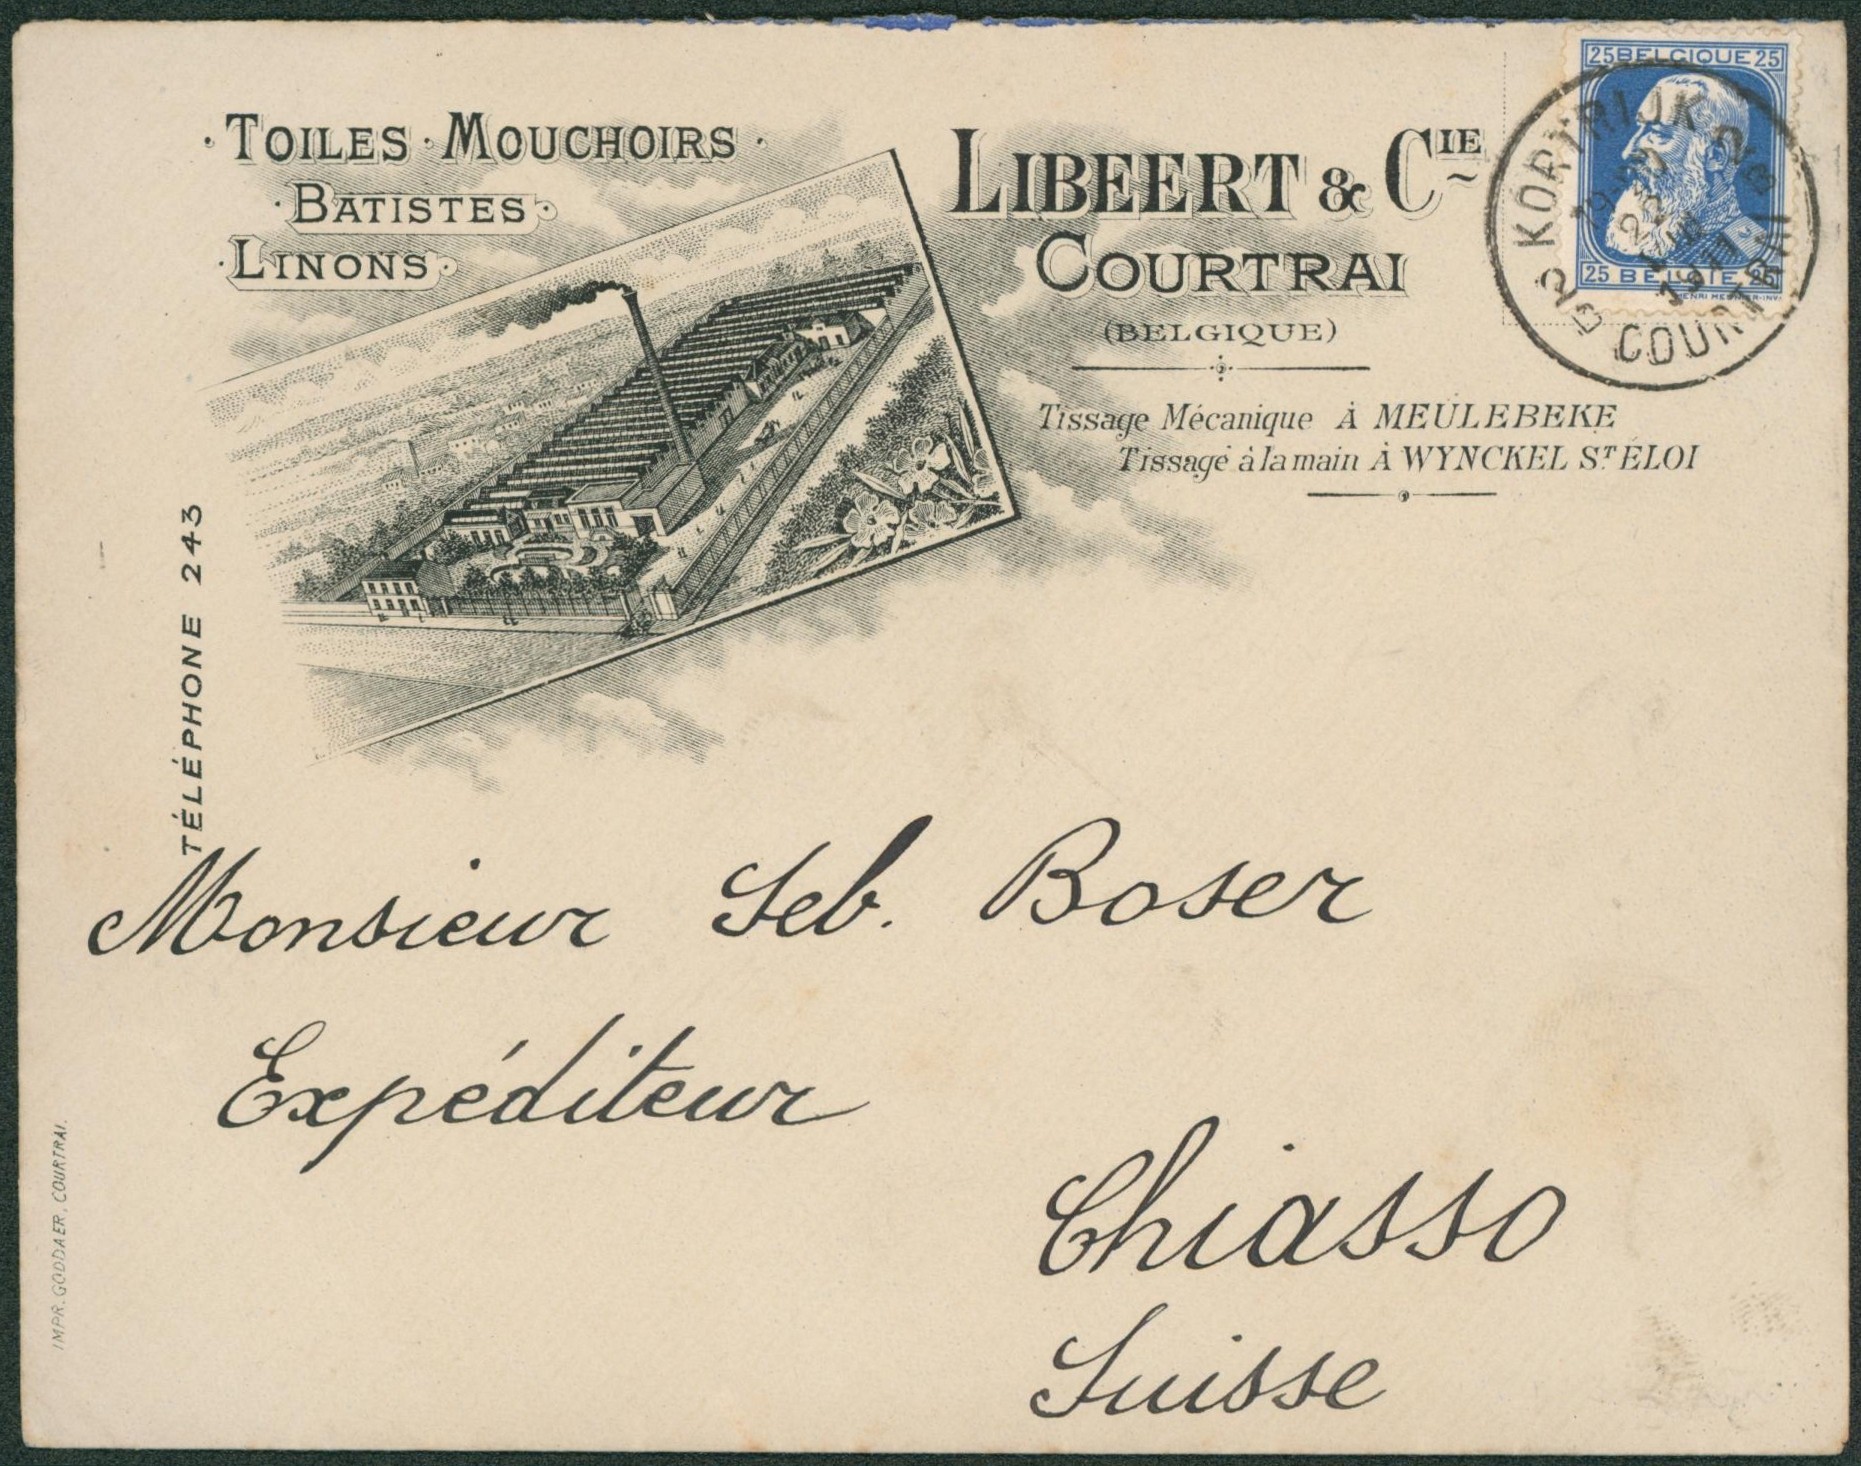 · TOILES · MOUCHOIRS ·
· BATISTES ·
· LINONS ·
LIBEERT & CIE
COURTRAI
(BELGIQUE)
Tissage Mécanique À MEULEBEKE
Tissage à la main À WYNCKEL ST ÉLOI
TÉLÉPHONE 243
25 BELGIQUE 25
25 BELGIE 25
KORTRIJK 2B
22
1911
COURTRAI
Monsieur Seb. Boser
Expéditeur
Chiasso
Suisse
IMPR. GODDAER, COURTRAI.